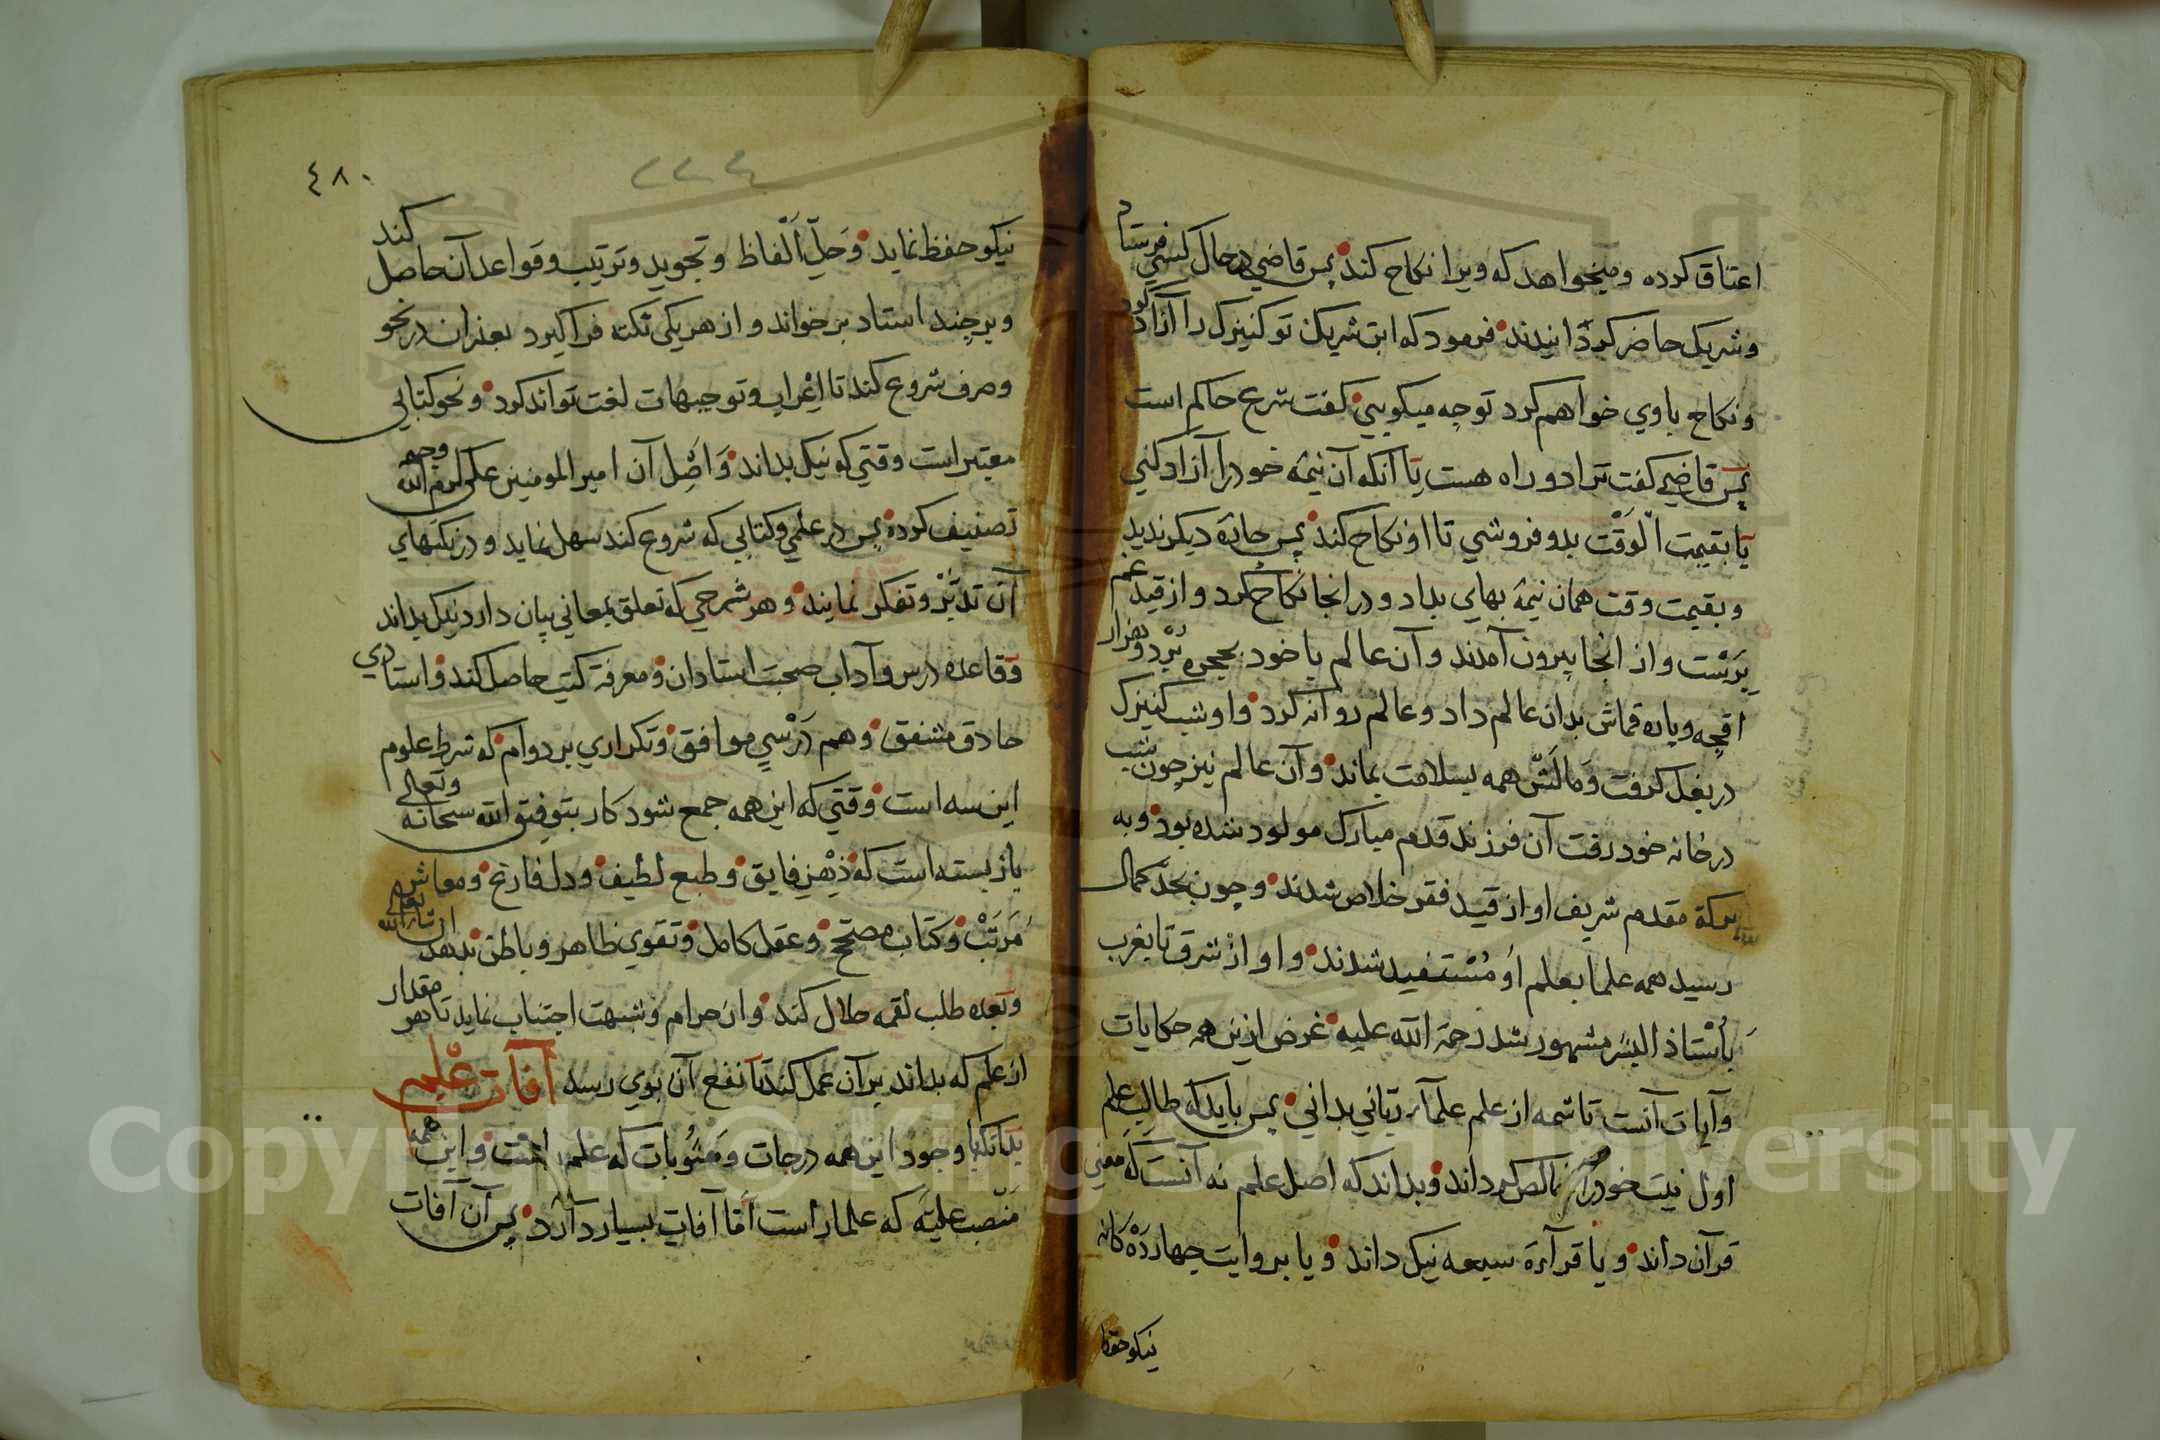 اعتاق کرده و میخواهد که ویرا نکاح کند پس قاضی در حال کسی فرستاد
و شریک حاضر کردانیدند فرمود که این شریک تو کنیزک را آزاد کرد
و نکاح با وی خواهم کرد تو چه میکویی کفت شرع حاکم است
پس قاضی کفت ترا دو راه هست یا آنکه آن نیمه خود را آزاد کنی
یا بقیمت الوقت بدو فروشی تا او نکاح کند پس چاره دیکر ندید
و بقیمت وقت همان نیمه بهای بداد و در انجا نکاح کرد و از قید غم
برست و از انجا بیرون آمدند و آن عالم با خود بحجره برد و هزار
اقچه و پاره قماش بدان عالم داد و عالم روانه کرد و او شب کنیزک
در بغل کرفت و مالش همه بسلامت بماند و آن عالم نیز چون شب
در خانه خود رفت آن فرزند قدم مبارک مولود شده بود و به
برکة مقدم شریف او از قید فقر خلاص شدند و چون بحد کمال
رسید همه علما بعلم او مستفید شدند و او از شرق تا بغرب
باستاذ البشر مشهور شد رحمة الله علیه غرض ازین همه حکایات
و آیات آنست تا شمه از علم علماء ربانی بدانی پس باید که طالب علم
اول نیت خود را خالص کرداند و بداند که اصل علم نه آنست که معنی
قرآن داند و یا قرآءة سبعه نیک داند و یا بروایت چهارده کانه
نیکو حفظ
٤٨٠
نیکو حفظ نماید و حل الفاظ و تجوید و ترتیب و قواعد آن حاصل کند
و بر چند استاد بر خواند و از هر یکی نکته فرا کیرد بعد از آن در نحو
و صرف شروع کند تا اعراب و توجیهات لغت تواند کرد و نحو کتابی
معتبر است وقتی کو نیک بداند و اصل آن امیر المومنین علی کرم الله وجهه
تصنیف کرده پس در علمی و کتابی که شروع کند سهل نماید و در نکتهای
آن تدبر و تفکر نمایند و هر شرحی که تعلق بمعانی بیان دارد نیک بداند
و قاعده درس و آداب صحبت استادان و معرفة کتب حاصل کند و استادی
حاذق مشفق و هم درسی موافق و تکراری بر دوام که شرط علوم
این سه است وقتی که این همه جمع شود کار بتوفیق الله سبحانه وتعالی
باز بسته است که ذهن فایق و طبع لطیف و دل فارغ و معاش
مرتب و کتاب مصحح و عقل کامل و تقوی ظاهر و باطن بدهد ان شاء الله تعالی
و بعده طلب لقمه حلال کند و از حرام و شبهت اجتناب نماید تا هر مقدار
از علم که بداند بر آن عمل کند تا نفع آن بوی رسد آفات علم
بدانکه با وجود این همه درجات و مثوبات که علم راست و این همه
منصب علیه که علما راست اما آفات بسیار دارد پس آن آفات